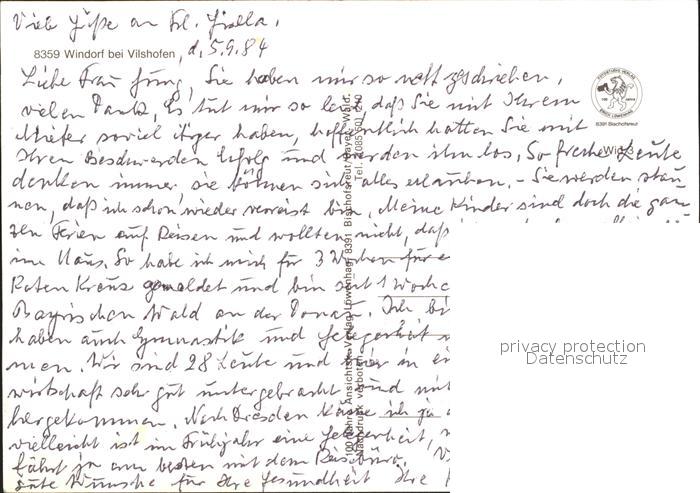 Viele Grüße an Frl. Gisella.
8359 Windorf bei Vilshofen, d. 5.9.84
Liebe Frau Jung, Sie haben mir so nett geschrieben,
vielen Dank. Es tut mir so leid, daß Sie mit Ihrem
Mieter soviel Ärger haben, hoffentlich hatten Sie mit
Ihren Beschwerden Erfolg und werden ihn los. So freche Leute
denken immer sie können sich alles erlauben. - Sie werden stau-
nen, daß ich schon wieder verreist bin. Meine Kinder sind doch die gan-
zen Ferien auf Reisen und wollten nicht, daß
im Haus. So habe ich mich für 3 Wochen für
Roten Kreuz gemeldet und bin seit 1 Woche
Bayrischen Wald an der Donau. Ich
haben auch Gymnastik und Gelegenheit
men. Wir sind 28 Leute und hier in
wirtschaft sehr gut untergebracht und mit
hergekommen. Nach Dresden käme ich ja
vielleicht ist im Frühjahr eine Gelegenheit,
fährt ja am besten mit dem Reisebüro.
gute Wünsche für Ihre Gesundheit Ihre
100 Jahre Ansichtskt.-Verlag Löwenhag, 8391 Bischofsreut/Bayer. Wald.
Nachdruck verboten. Tel. (
8391 Bischofsreut
privacy protection
Datenschutz